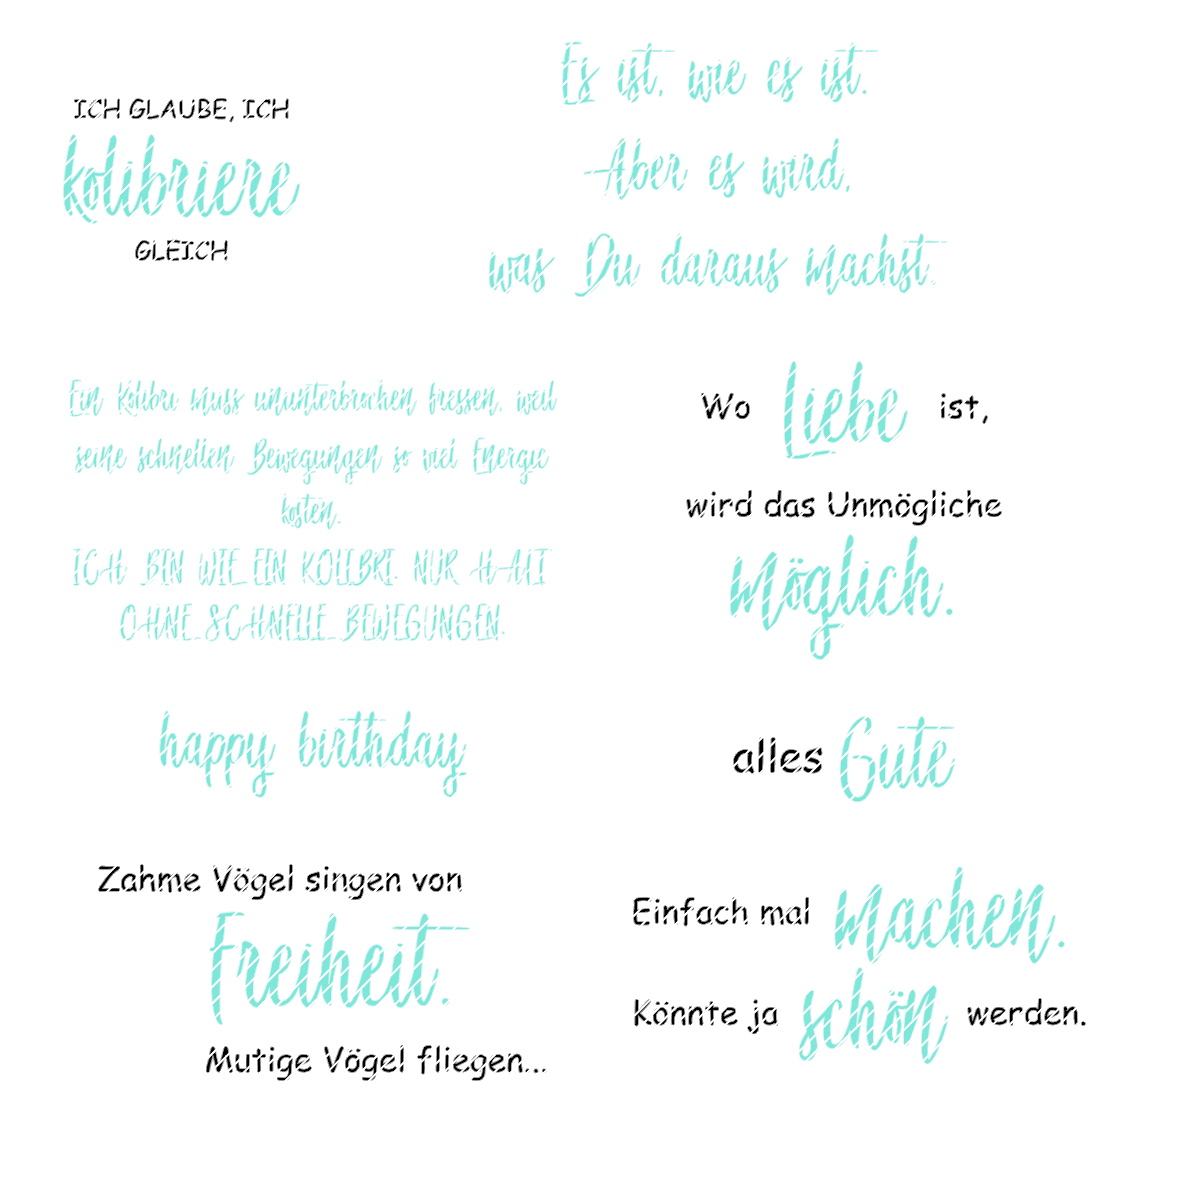 ICH GLAUBE, ICH
kolibriere
GLEICH
Es ist, wie es ist.
Aber es wird,
was Du daraus machst.
Ein Kolibri muss ununterbrochen fressen, weil
seine schnellen Bewegungen so viel Energie
kosten.
ICH BIN WIE EIN KOLIBRI. NUR HALT
OHNE SCHNELLE BEWEGUNGEN.
Wo Liebe ist,
wird das Unmögliche
möglich.
happy birthday
alles Gute
Zahme Vögel singen von
Freiheit.
Mutige Vögel fliegen...
Einfach mal machen.
Könnte ja schön werden.